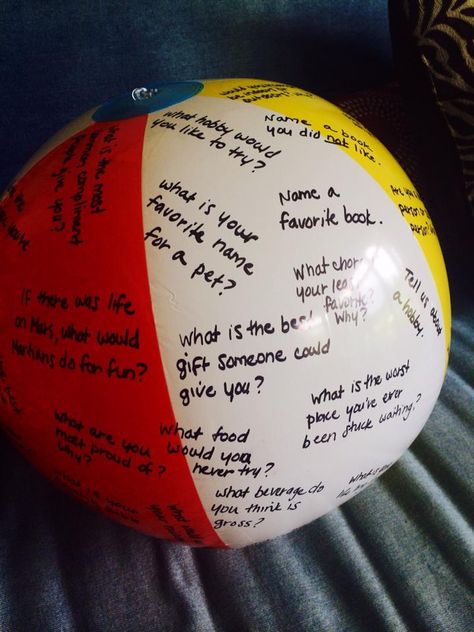 What hobby would
you like to try?
Name a book
you did not like.
What is the most
common compliment
people give you?
What is your
favorite name
for a pet?
Name a
favorite book.
What chore
your least
favorite?
Why?
Tell us about
a hobby.
If there was life
on Mars, what would
Martians do for fun?
What is the best
gift someone could
give you?
What is the worst
place you've ever
been stuck waiting?
What are you
most proud of?
Why?
What food
would you
never try?
What beverage do
you think is
gross?
What is your
Are you
person
person